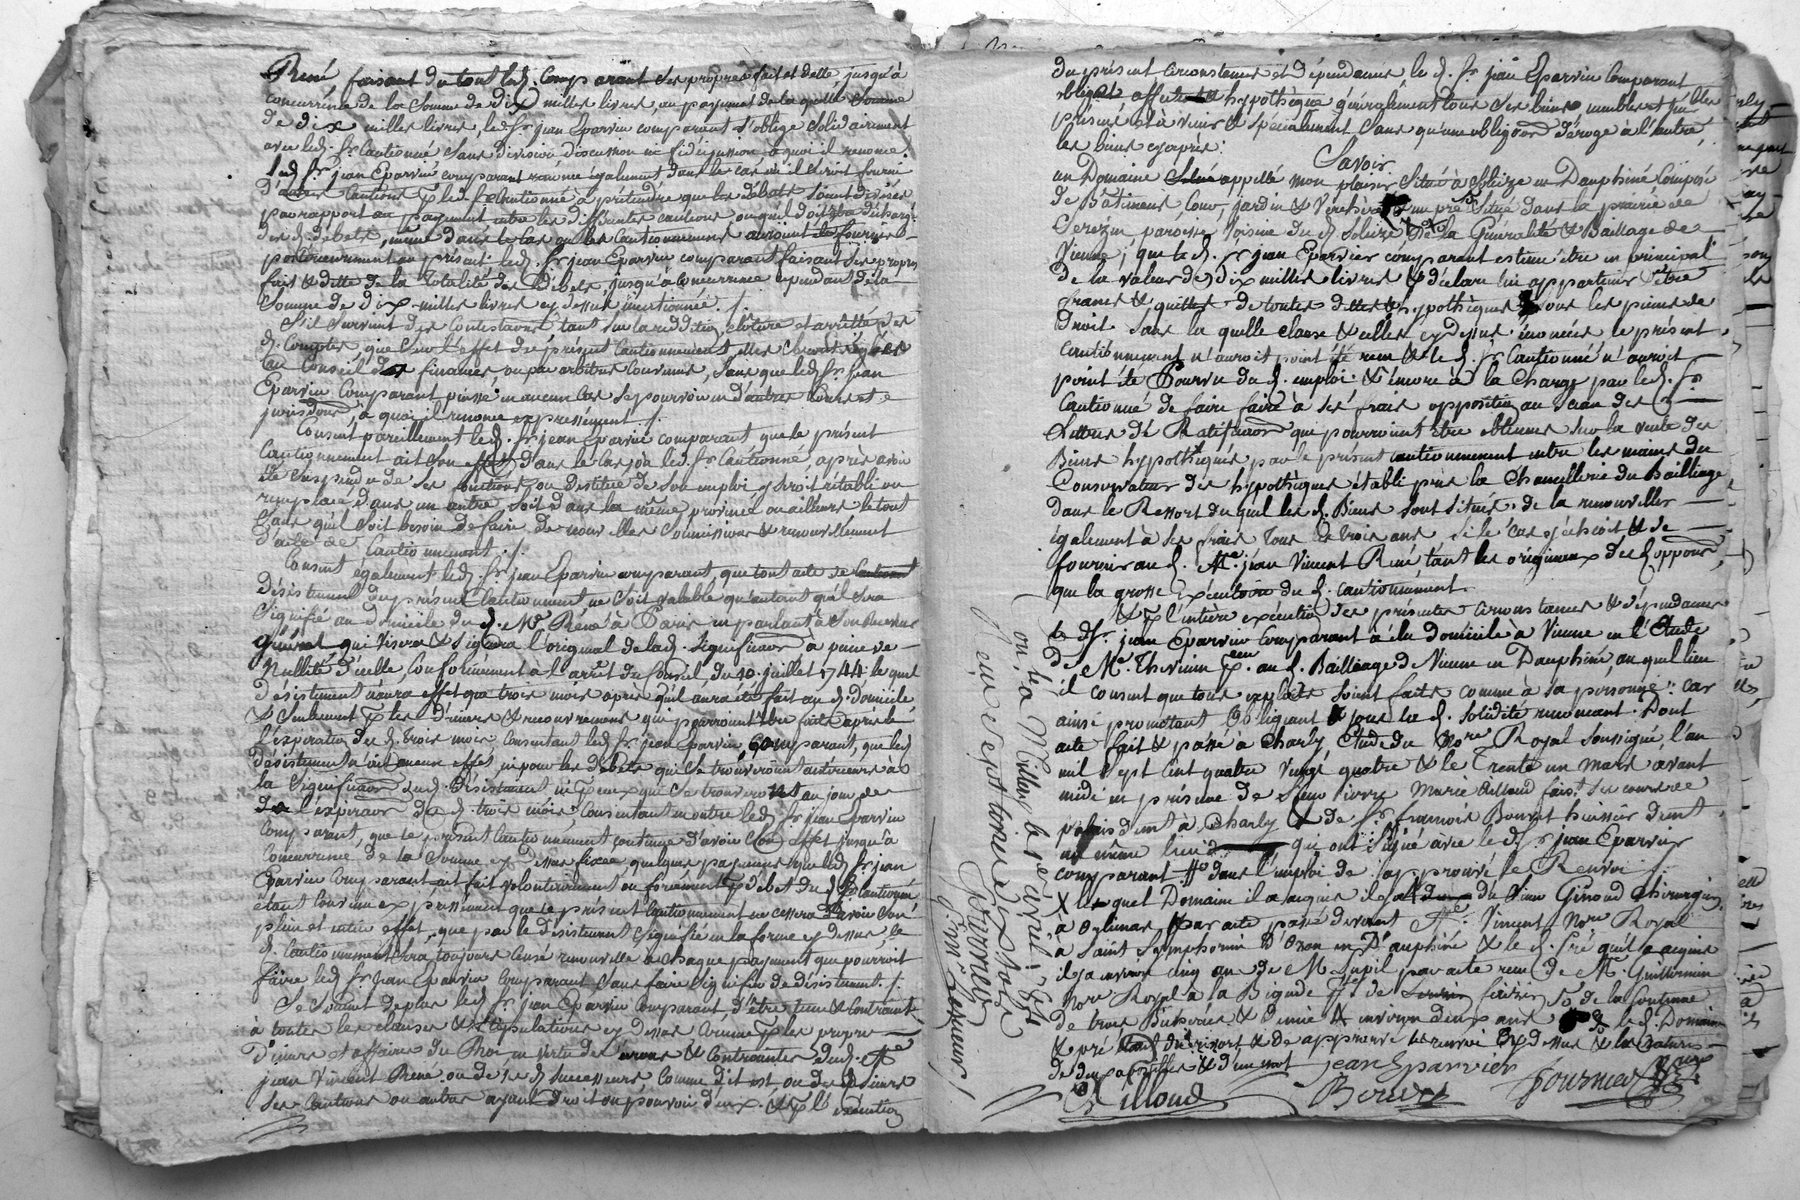 René faisant du tout led. Comparant ses propres fait et dette jusqu'à
concurrence de la Somme de dix milles livres, au payement de la quelle Somme
de dix milles livres, led. Sr. jean Eparvier comparant s'oblige solidairement
avec led. Sr. Cautionné sans division discussion ni fidejussion à quoi il renonce.
led. Sr. jean Eparvier comparant renonce également dans le cas où il seroit fourni
d'autres Cautions p. led. Sr. Cautionné à prétendre que les débets soient divisés
par rapport au payement entre les différentes cautions ou qu'il doit être décharg.
des d. débets, même dans le Cas ou les Cautionnemens auroient été fournis
postérieurement au présent led. Sr. jean Eparvier comparant faisant ses propres
fait & dette de la totalité des débets, jusqu'à Concurrence cependant de la
Somme de dix milles livres cy dessus mentionnée ./.
S'il survient des Contestations tant sur la reddition clôture et arrêtté des
d. Comptes que sur l'effet du présent Cautionnement elles seront réglées
au Conseil des finances, ou par arbitres convenus, sans que led. Sr. jean
Eparvier Comparant puisse en aucun cas se pourvoir en d'autres Cours et
jurisdons. à quoi il renonce expressément ./.
Consent pareillement led. Sr. jean Eparvier comparant que le présent
Cautionnement ait son effet dans le Cas où led. Sr. Cautionné, après avoir
été suspendu de ses fonctions ou destitué de son emploi y seroit rétabli ou
remplacé dans un autre soit dans la même province ou ailleurs le tout
sans qu'il soit besoin de faire de nouvelles soumissions & renouvellement
d'acte de Cautionnement ./.
Consent également led. Sr. jean Eparvier comparant, que tout acte de
désistement du présent Cautionnement ne soit valable qu'autant qu'il sera
signifié au domicile du d. Me. René à Paris en parlant à son Directeur
général qui visera & signera l'original de lad. signification à peine de
Nullité d'icelle, Conformément à l'arrêt du Conseil du 10. juillet 1744 le quel
désistement n'aura effet que trois mois après qu'il aura été fait au d. domicile
& seulement p. les d'iceux & recouvremens qui pourroient être faits après
l'expiration des d. trois mois Consentant led. Sr. jean Eparvier, Comparant, que led.
désistement n'ait aucun effet, ni pour les débets qui se trouveroient antérieurs à
la signification dud. désistement ni p. ceux qui se trouveront au jour de
l'expiration des d. trois mois Consentant en outre led. Sr. jean Eparvier
Comparant, que le présent Cautionnement continue d'avoir son effet jusqu'à
Concurrence de la Somme cy dessus fixée quelques payemens que led. Sr. jean
Eparvier Comparant ait fait volontairement ou forcément p. débet du d. Sr. Cautionné
étant Convenu expressément que le présent Cautionnement ne cessera d'avoir son
plein et entier effet, que par le désistement signifié en la forme cy dessus le
d. Cautionnement sera toujours censé renouvellé à chaque payement que pourroit
faire led. Sr. jean Eparvier Comparant sans faire signifier de désistement ./.
Se soumet de plus led. Sr. jean Eparvier Comparant, d'être tenu & contraint
à toutes les clauses & stipulations cy dessus comme p. les propres
Deniers et affaires du Roi en vertu des & Contraintes dud. Me.
jean Vincent René ou de ses d. Successeurs, comme dit est ou des d. Sieurs
ses Cautions ou autres ayant droit ou pouvoir d'eux. & p. l'exécution
du présent circonstances et dépendances le d. Sr. jean Eparvier Comparant
oblige affecte & hypothèque généralement tous ses biens meubles et immeubles
présens et à venir & spécialement Sans qu'une obligaon déroge à l'autre,
les biens cy après:
Savoir
un Domaine appellé mon plaisir situé à Solaize en Dauphiné Composé
de Bâtimens, Cour, jardin & Verchère & un pré situé dans la prairie de
Serézin paroisse voisine du d. Solaize de la Généralité & Bailliage de
Vienne, que le d. Sr. jean Eparvier comparant estime être en principal
de la valeur de dix milles livres & déclare lui appartenir & être
francs & quittes de toutes dettes & hypothèques sous les peines de
Droit. Sans la quelle clause & celles cy dessus énoncées le présent
Cautionnement n'auroit point été reçu & le d. Sr. Cautionné n'auroit
point été Pourvu du d. emploi. & encore à la Charge par led. Sr.
Cautionné de faire faire à ses frais opposition au sceau des
Lettres de Ratification que pourroient être obtenues sur la vente des
Biens hypothéqués par le présent cautionnement entre les mains du
Conservateur des hypothèques établi près la Chancellerie du Bailliage
dans le Ressort du quel les d. Biens sont situés. de la renouveller
également à ses frais tous les trois ans si le cas y échoit & de
fournir au d. Me. jean Vincent René tant les originaux des d. oppons.
que la grosse Exécutoire du d. cautionnement.
& p. l'entière exécution des présentes circonstances & dépendances
le d. Sr. jean Eparvier Comparant à élu domicile à Vienne en l'Etude
de Me. Thevenin pr. au d. Bailliage de Vienne en Dauphiné, au quel lieu
il consent que tous exploits soient faits comme à sa personne: car
ainsi promettant obligeant & sous la d. solidité renonçant. Dont
acte fait & passé à Charly, Etude du Nore. Royal soussigné, l'an
mil sept cent quatre vingt quatre & le trente un mars avant
midi en présence de sieur pierre Marie Cilloud fais.t les courses de
palais demt. à Charly & de Sr. francois Bouvet huissier demt.
au même lieu qui ont signé avec le d. Sr. jean Eparvier
comparant dans l'emploi de j'approuve le Renvoi
X le quel Domaine il a acquis du Sieur Giraud Chirurgien
à Oullins par acte passé devant Me. Vincent Nore. Royal
à Saint Symphorien d'Ozon en Dauphiné & le d. Pré qu'il a acquis
il y a environ cinq ans de M. Lupil par acte reçu de Me. Guillermin
Nore. Royal à la de la Contenue
de trois Bicherées & demie & environ deux ans le d. Domaine
& pré & approuvé le renvoi cy dessus & la rature
de deux & d'un mot jean Eparvier
Cilloud Bouvet fournereau
Con. à Millery le 1er avril 1784
reçu vingt livres
Gouvonet